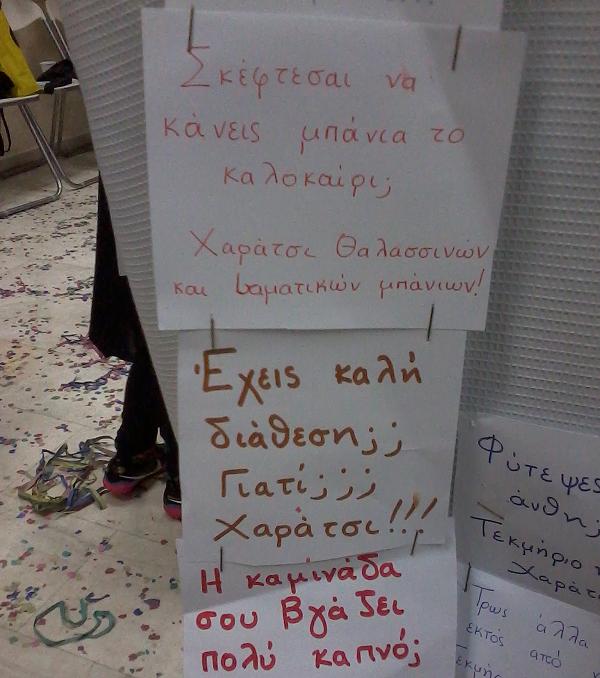 Σκέφτεσαι να
κάνεις μπάνια το
καλοκαίρι;
Χαράτσι θαλασσινών
και ιαματικών μπάνιων!
Έχεις καλή
διάθεση;;
Γιατί;;;
Χαράτσι!!!
Η καμινάδα
σου βγάζει
πολύ καπνό;
Φύτεψες
άνθη;
Τεκμήριο
Τρως άλλα
εκτός από